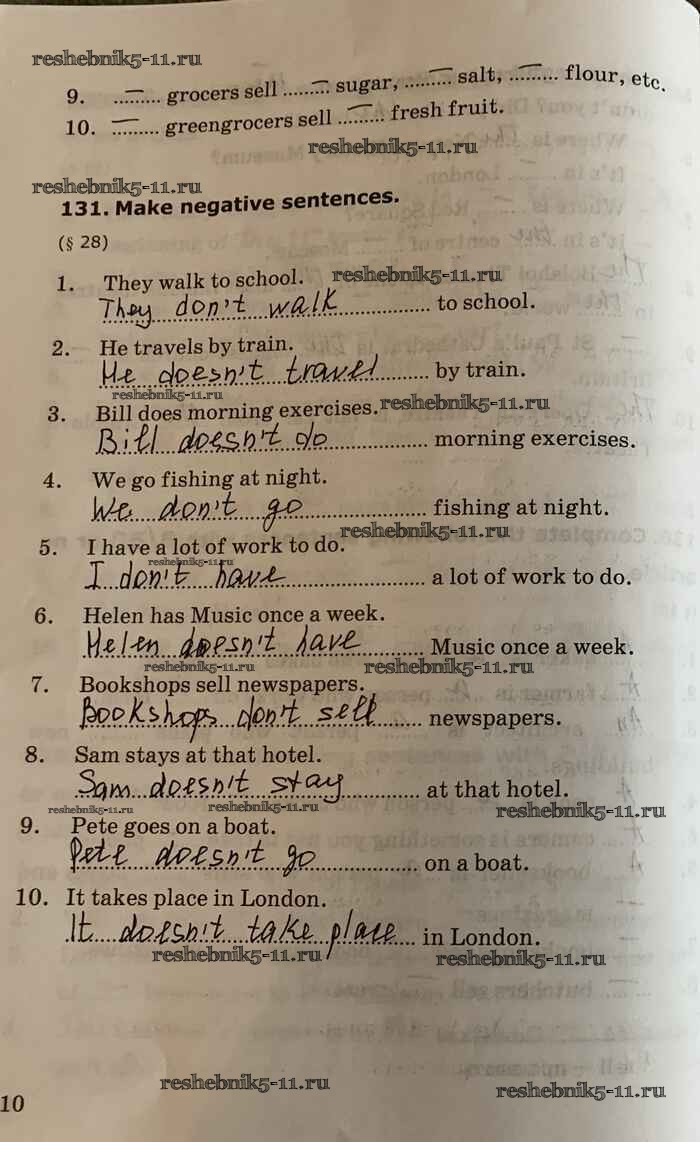 reshebnik5-11.ru
9. ......... grocers sell ......... sugar, ......... salt, ......... flour, etc.
10. ......... greengrocers sell ......... fresh fruit.
reshebnik5-11.ru
reshebnik5-11.ru
131. Make negative sentences.
(§ 28)
1. They walk to school. reshebnik5-11.ru
They don't walk to school.
2. He travels by train.
He doesn't travel by train.
reshebnik5-11.ru
3. Bill does morning exercises. reshebnik5-11.ru
Bill doesn't do morning exercises.
4. We go fishing at night.
We don't go fishing at night.
reshebnik5-11.ru
5. I have a lot of work to do.
reshebnik5-11.ru
I don't have a lot of work to do.
6. Helen has Music once a week.
Helen doesn't have Music once a week.
reshebnik5-11.ru reshebnik5-11.ru
7. Bookshops sell newspapers.
Bookshops don't sell newspapers.
8. Sam stays at that hotel.
Sam doesn't stay at that hotel.
reshebnik5-11.ru reshebnik5-11.ru reshebnik5-11.ru
9. Pete goes on a boat.
Pete doesn't go on a boat.
10. It takes place in London.
It doesn't take place in London.
reshebnik5-11.ru reshebnik5-11.ru
reshebnik5-11.ru reshebnik5-11.ru
10